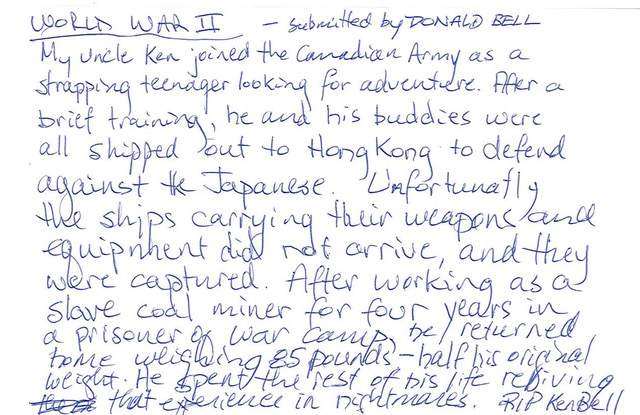 WORLD WAR II - submitted by DONALD BELL
My Uncle Ken joined the Canadian Army as a
strapping teenager looking for adventure. After a
brief training, he and his buddies were
all shipped out to Hong Kong to defend
against the Japanese. Unfortunatly
the ships carrying their weapons and
equipment did not arrive, and they
were captured. After working as a
slave coal miner for four years in
a prisoner of war camp, he returned
home weighing 85 pounds - half his original
weight. He spent the rest of his life reliving
that experience in nightmares. RIP Ken Bell